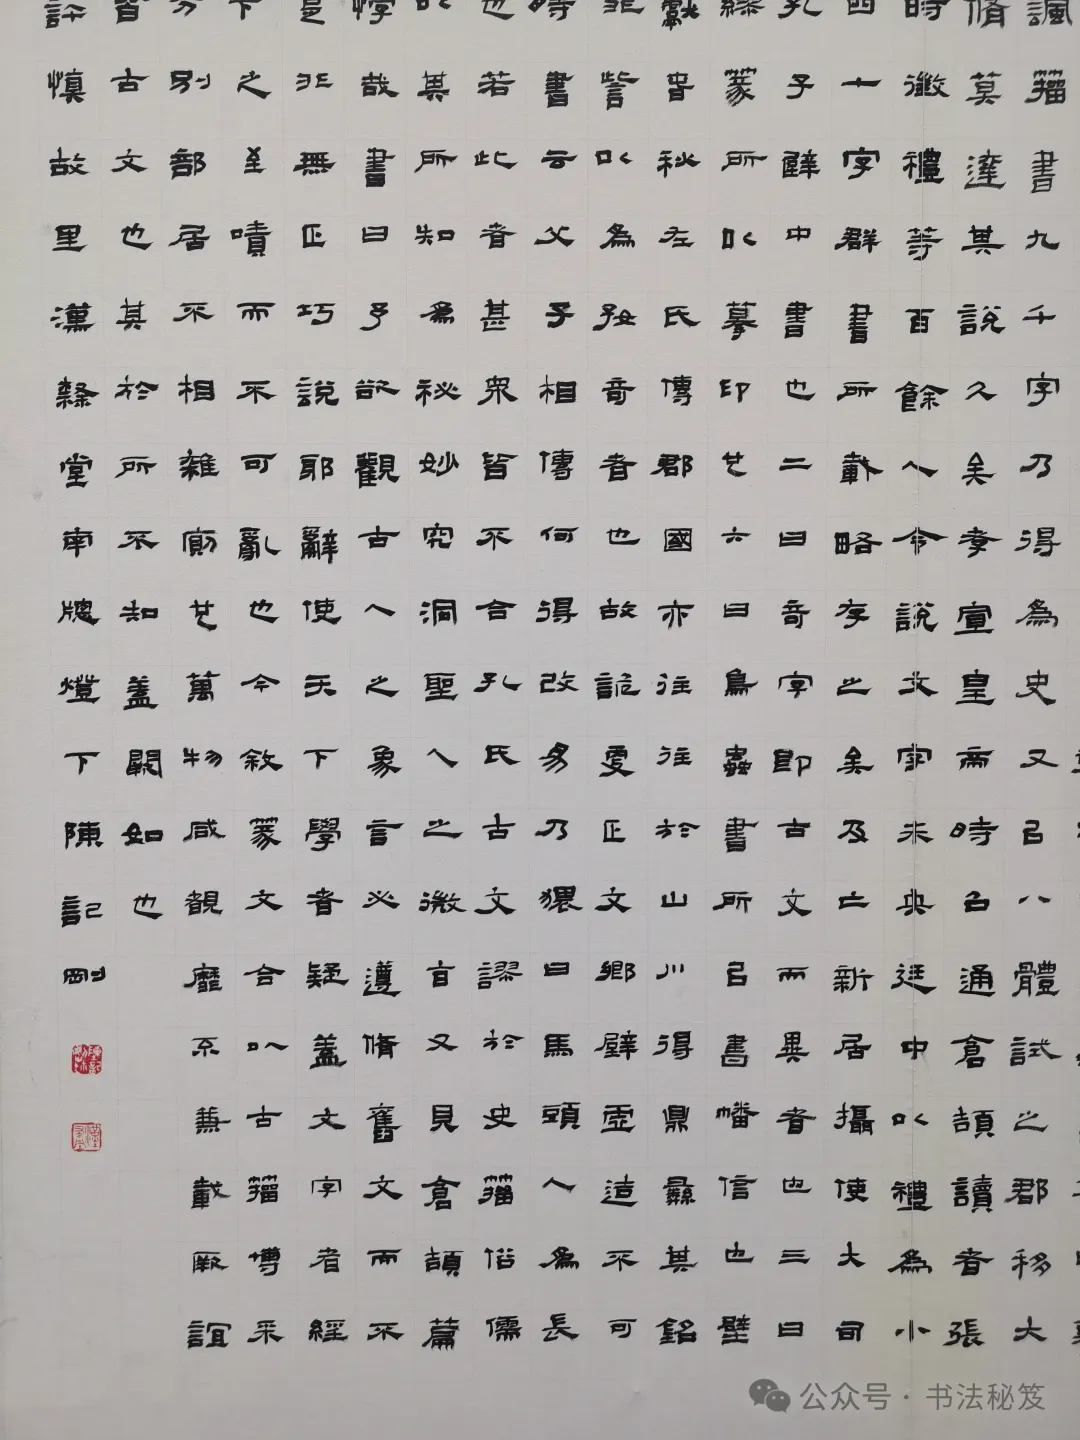 諷籀書九千字乃得為史又㠯八體試之郡移大
脩莫達其說久矣孝宣皇帝時召通倉頡讀者張
時徵禮等百餘人令說文字未央廷中以禮為小
四十字群書所載略存之矣及亡新居攝使大司
孔子壁中書也二曰奇字即古文而異者也三曰
繆篆所以摹印也六曰鳥蟲書所㠯書幡信也壁
獻春秋左氏傳郡國亦往往於山川得鼎彝其銘
非訾以為好奇者也故詭更正文鄉壁虛造不可
時書云父子相傳何得改易乃猥曰馬頭人為長
也若此者甚眾皆不合孔氏古文謬於史籀俗儒
以其所知為祕妙究洞聖人之微旨又見倉頡篇
悖哉書曰予欲觀古人之象言必遵脩舊文而不
是非無正巧說邪辭使天下學者疑蓋文字者經
下之至嘖而不可亂也今敘篆文合以古籀博采
分別部居不相雜廁也萬物咸覩靡不兼載厥誼
皆古文也其於所不知蓋闕如也
許慎故里漢隸堂南牕燈下陳記剛
公众号·书法秘笈